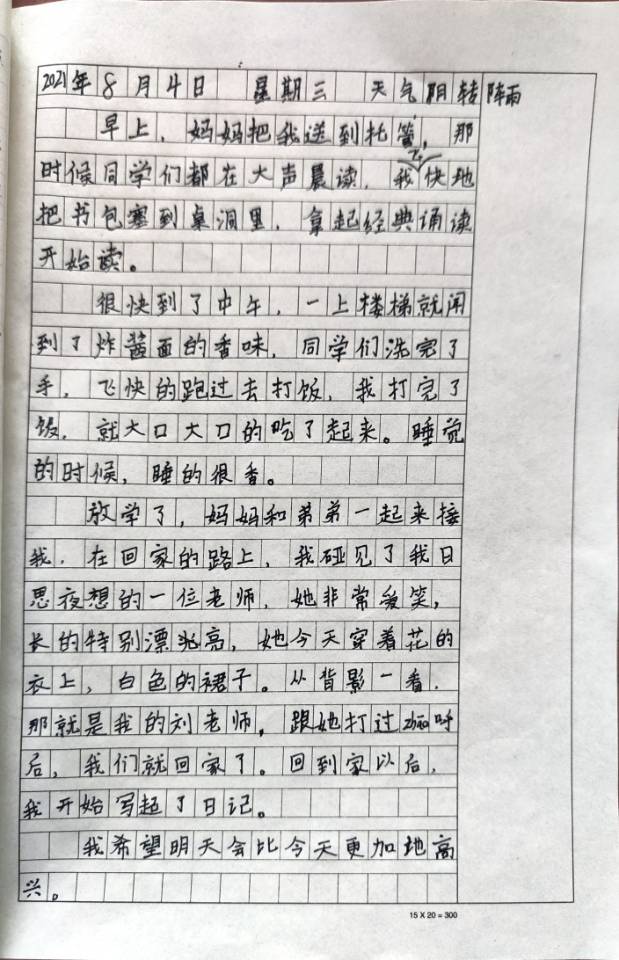 2021年8月4日 星期三 天气阴转阵雨
早上，妈妈把我送到托管，那
时候同学们都在大声晨读，我飞快地
把书包塞到桌洞里，拿起经典诵读
开始读。
很快到了中午，一上楼梯就闻
到了炸酱面的香味，同学们洗完了
手，飞快的跑过去打饭，我打完了
饭，就大口大口的吃了起来。睡觉
的时候，睡的很香。
放学了，妈妈和弟弟一起来接
我，在回家的路上，我碰见了我日
思夜想的一位老师，她非常爱笑，
长的特别漂亮，她今天穿着花的
衣上，白色的裙子。从背影一看，
那就是我的刘老师，跟她打过zhao呼
后，我们就回家了。回到家以后，
我开始写起了日记。
我希望明天会比今天更加地高
兴。
15 X 20 = 300